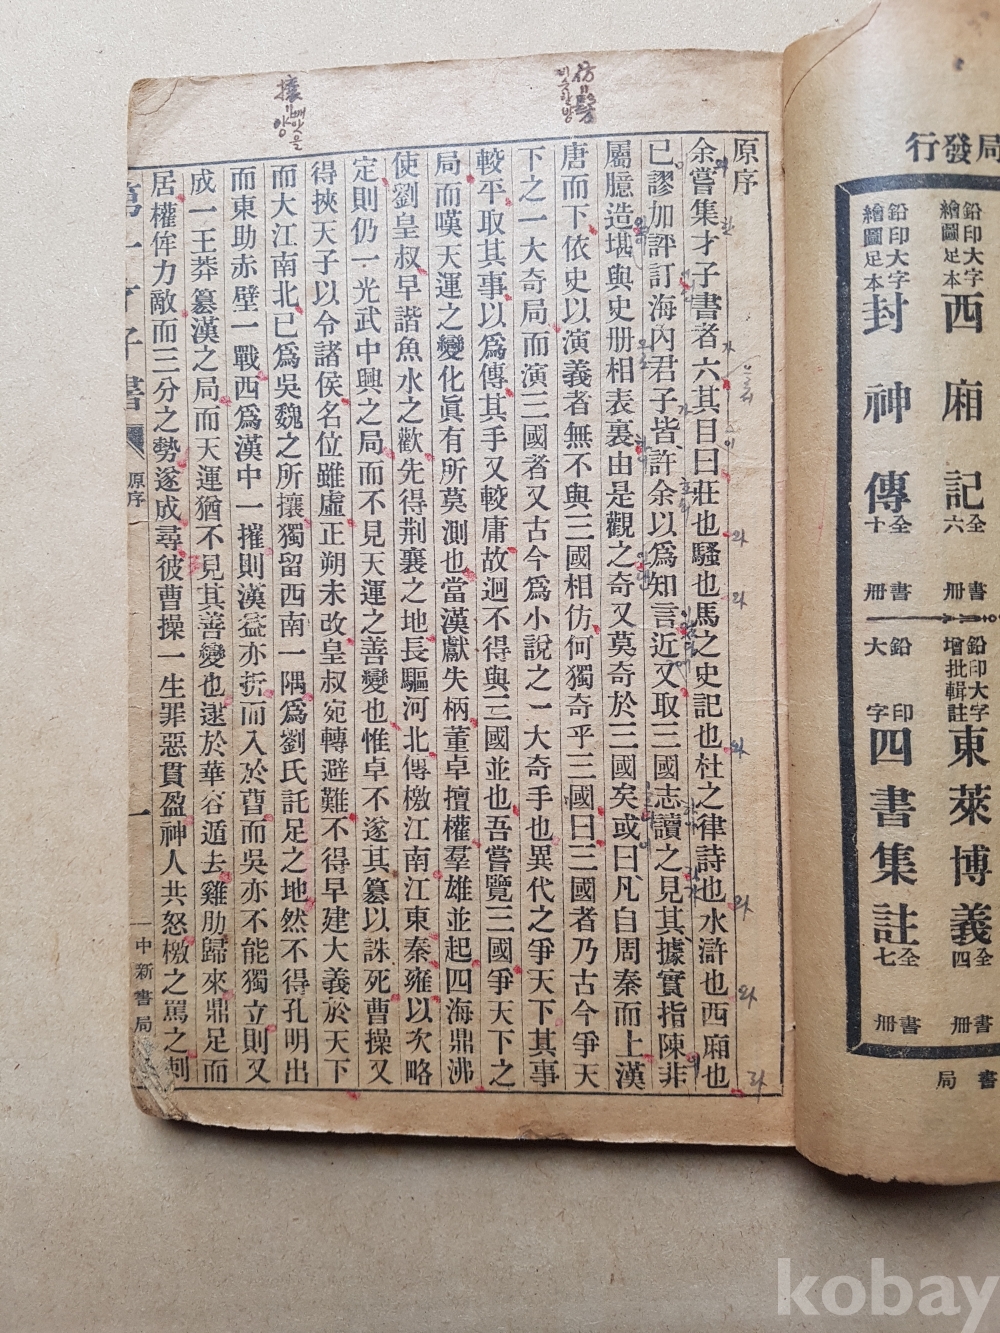 局發行
鉛印大字
繪圖足本
西廂記
全六
書册
鉛印大字
繪圖足本
封神傳
全十
書册
鉛印大字
增批輯註
東萊博義
全四
書册
鉛印
大字
四書集註
全七
書册
書局
原序
余嘗集才子書者六其目曰莊也騷也馬之史記也杜之律詩也水滸也西廂也
已謬加評訂海內君子皆許余以爲知言近又取三國志讀之見其據實指陳非
屬臆造堪與史册相表裏由是觀之奇又莫奇於三國矣或曰凡自周秦而上漢
唐而下依史以演義者無不與三國相仿何獨奇乎三國曰三國者乃古今爭天
下之一大奇局而演三國者又古今爲小說之一大奇手也異代之爭天下其事
較平取其事以爲傳其手又較庸故迥不得與三國並也吾嘗覽三國爭天下之
局而嘆天運之變化眞有所莫測也當漢獻失柄董卓擅權羣雄並起四海鼎沸
使劉皇叔早諧魚水之歡先得荆襄之地長驅河北傳檄江南江東秦雍以次略
定則仍一光武中興之局而不見天運之善變也惟卓不遂其簒以誅死曹操又
得挾天子以令諸侯名位雖虛正朔未改皇叔宛轉避難不得早建大義於天下
而大江南北已爲吳魏之所攘獨留西南一隅爲劉氏託足之地然不得孔明出
而東助赤壁一戰西爲漢中一摧則漢益亦折而入於曹而吳亦不能獨立則又
成一王莽簒漢之局而天運猶不見其善變也逮於華容遁去雞肋歸來鼎足而
居權侔力敵而三分之勢遂成尋彼曹操一生罪惡貫盈神人共怒檄之罵之刺
第一才子書
原序
一
中新書局
仿
비슷할방
攘
빼앗을
양
와
와
와
와
와
라
kobay